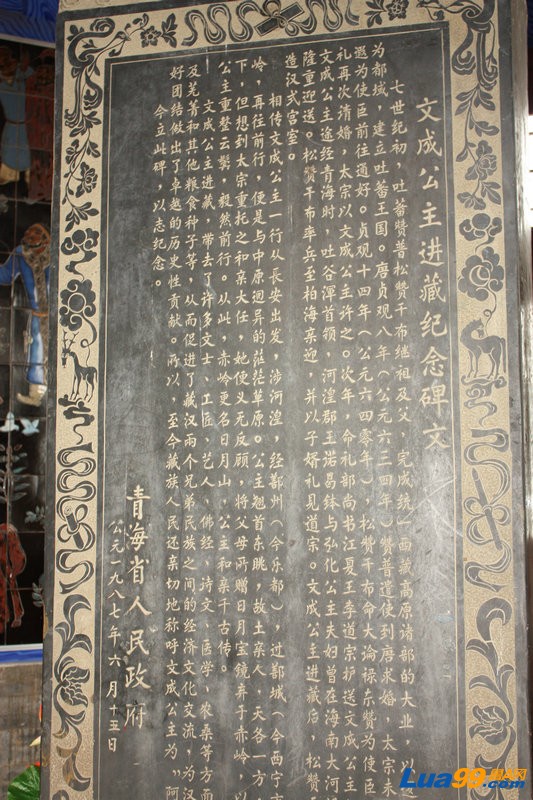 文成公主进藏纪念碑文
七世纪初，吐蕃赞普松赞干布继祖及父，完成统一西藏高原诸部的大业，以逻
为都城，建立吐蕃王国。唐贞观八年（公元六三四年）赞普遣使到唐求婚，太宗未
遐为使臣前往通好。贞观十四年（公元六四零年），松赞干布命大论禄东赞为使臣
礼再次请婚，太宗以文成公主许之。次年，命礼部尚书江夏王李道宗护送文成公主
文成公主途经青海时，吐谷浑首领，河湟郡王诺曷钵与弘化公主夫妇曾在海南大河
隆重迎送。松赞干布率兵至柏海亲迎，并以子婿礼见道宗。文成公主进藏后，松赞干
造汉式宫室。
相传文成公主一行从长安出发，涉河湟，经鄯州（今乐都），过鄯城（今西宁市
岭，再往前行，便是与中原迥异的茫茫草原。公主翘首东眺，故土亲人，天各一方
下，但想到大宗重托之和亲大任，她便义无反顾，将父母所赠日月宝镜弃于赤岭，以
公主重整云鬓，毅然前行。从此，赤岭更名日月山，公主和亲千古传。
文成公主进藏，带去了许多文士、工匠、艺人、佛经、诗文、医学、农桑等方面
及芜菁和其他粮食种子等，从而促进了藏汉两个兄弟民族之间的经济文化交流，为汉
好团结做出了卓越的历史性贡献。所以，至今藏族人民还亲切地称呼文成公主为“阿
今立此碑，以志纪念。
青海省人民政府
公元一九八七年六月十五日
Lua99.com